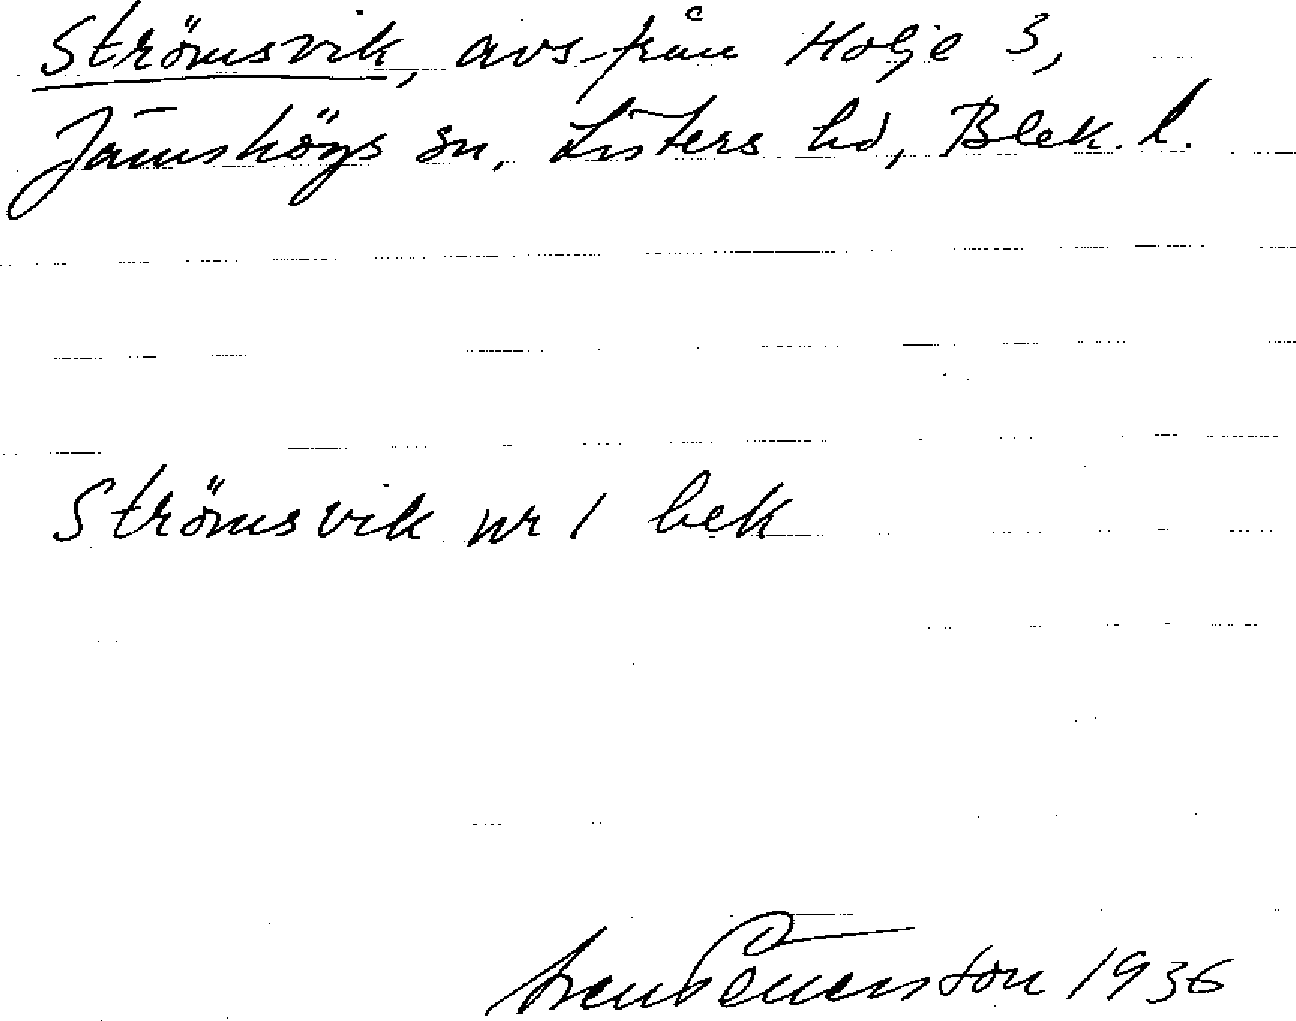 Strömsvik, avs från Holje 3,
Jämshögs sn, Listers hd, Blek. l.
Strömsvik nr 1 bek
1936